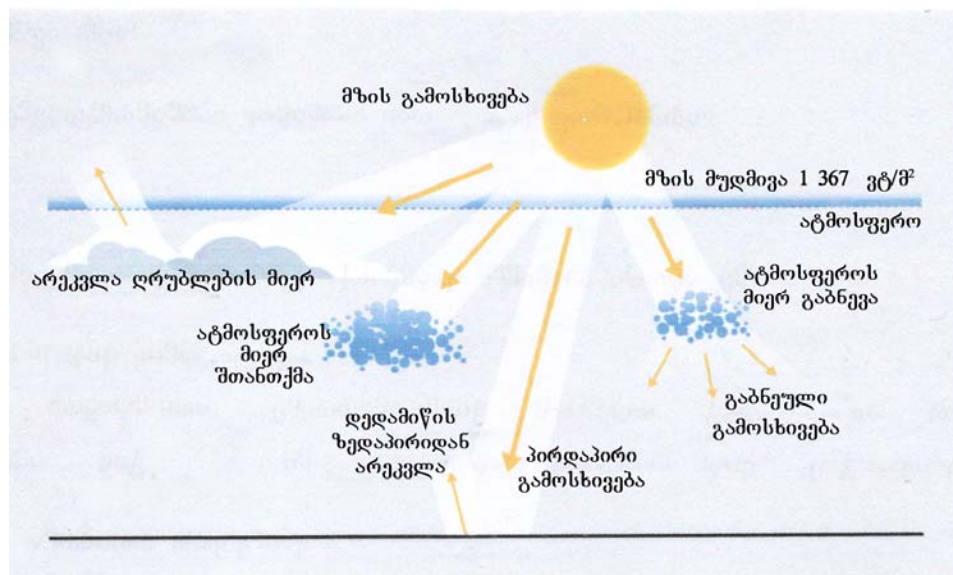 მზის გამოსხივება
მზის მუდმივა 1 367 ვტ/მ²
ატმოსფერო
არეკვლა ღრუბლების მიერ
ატმოსფეროს
მიერ გაბნევა
ატმოსფეროს
მიერ
შთანთქმა
გაბნეული
გამოსხივება
დედამიწის
ზედაპირიდან
არეკვლა
პირდაპირი
გამოსხივება